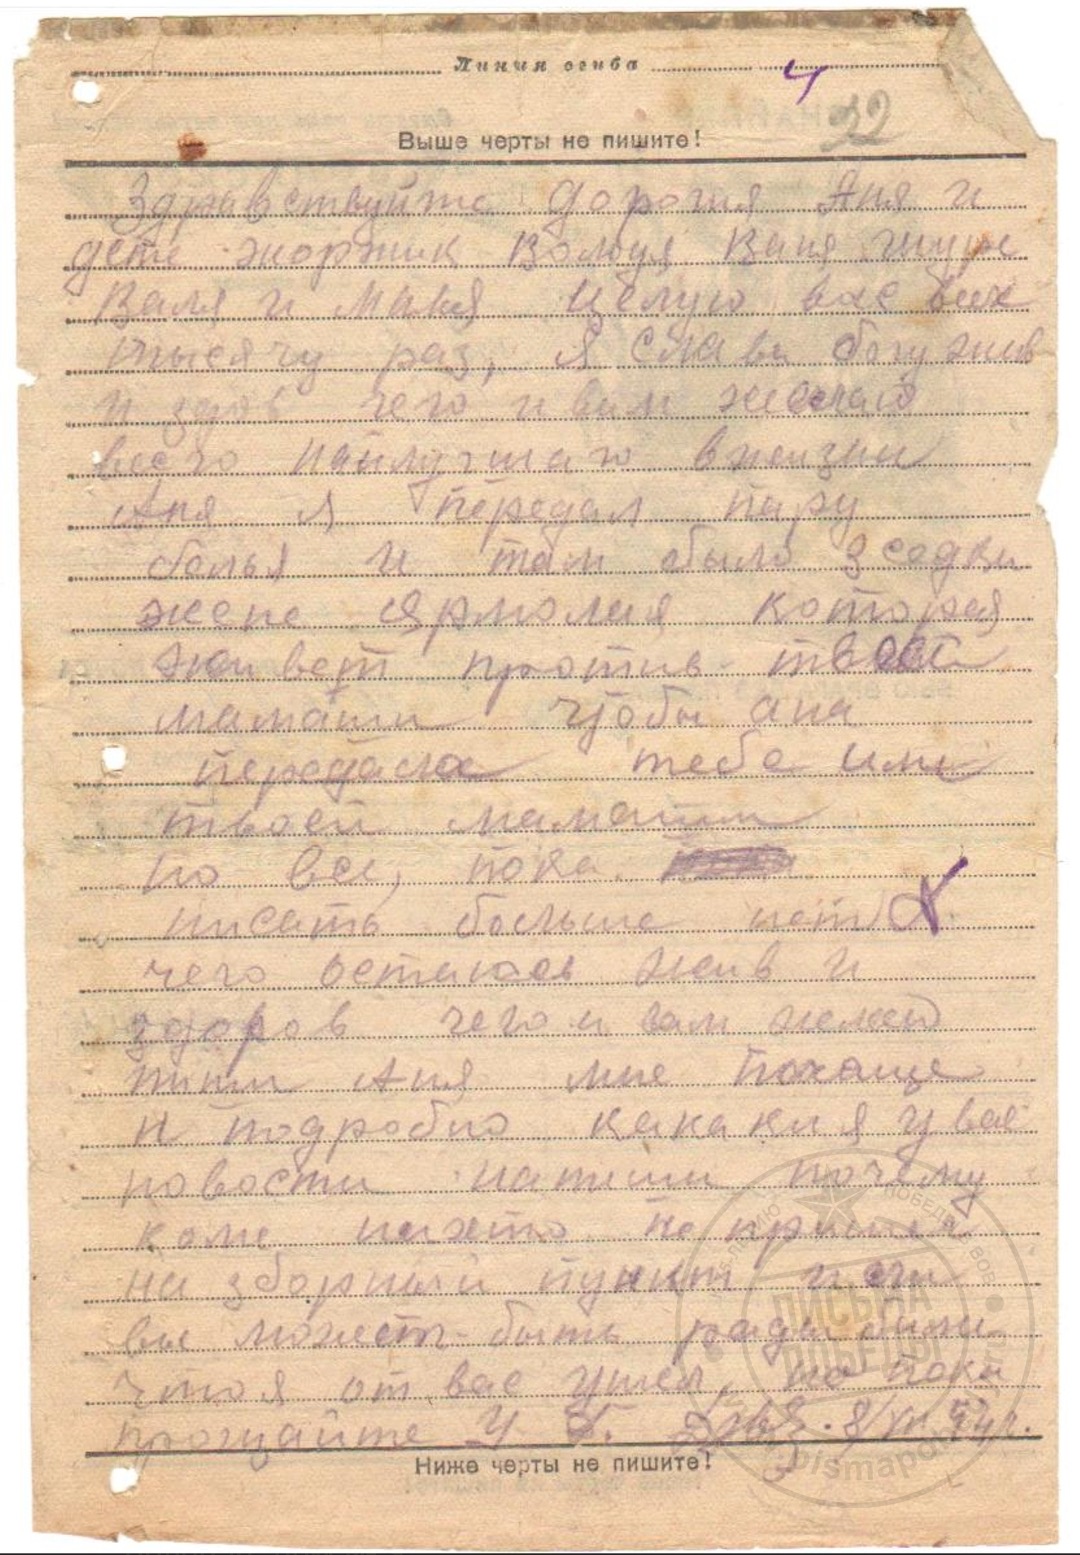 Линия сгиба 4
32
Выше черты не пишите!
Здравствуйте дорогия Аня и
дети жоржик Володя Ваня шура
Валя и Маня целую вас всех
тысячу раз, я слава богу жив
и здов чего и вам желаю
всего найлутшаго вжизни
Аня я передал пару
белья и там было
жене Ярмолия которая
живет против твоей
мамаши чтобы ана
передала тебе или
твоей мамаши
но все, пока
писать больше нет
чего остаюсь жив и
здоров чего и вам желаю
пиши Аня мне почаще
и подробно какакия у вас
новости напиши почему
коме нихто не пришел
на зборный пункт или
вы может быть рады были
что я от вас ушел, но пока
прощайте 8/VII 44 г.
Ниже черты не пишите!
ПИСЬМА
ПОБЕДЫ